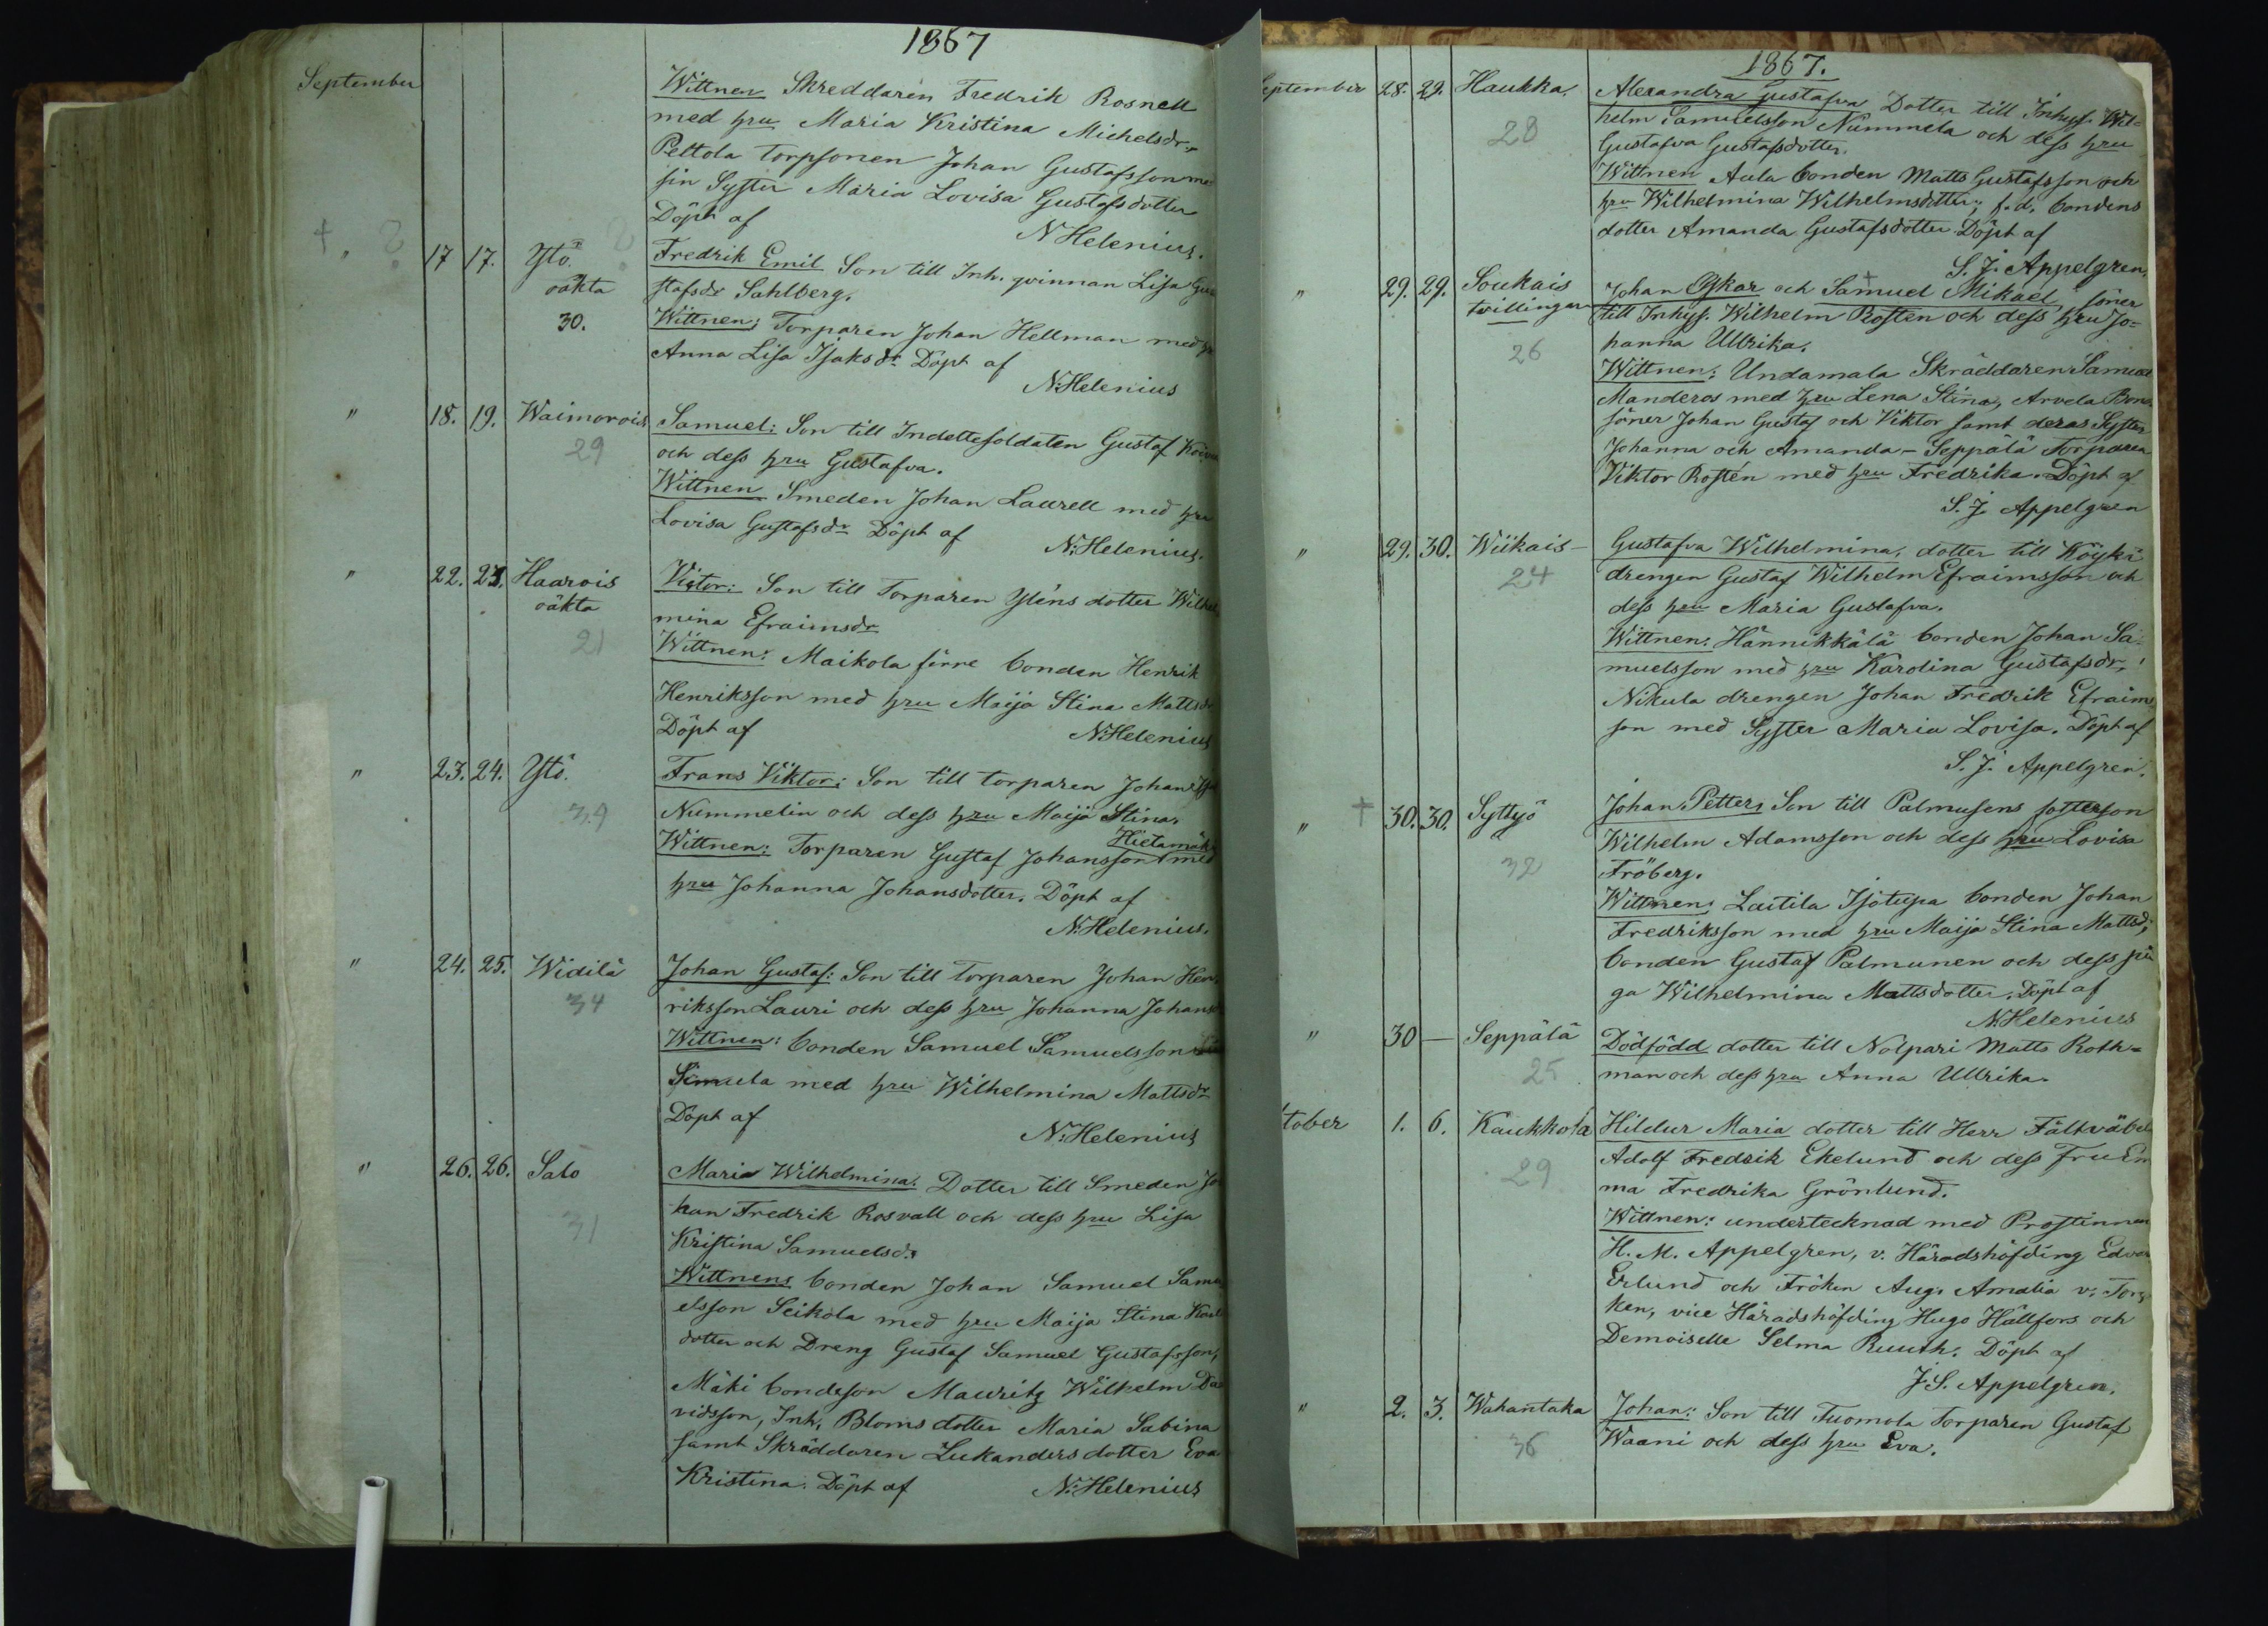 1867
September
Wittnen Skreddaren Fredrik Rosnell
med hru Maria Kristina Michelsdr.
Peltola torpsonen Johan Gustafsson
sin Syster Maria Lovisa Gustafsdotter
Döpt af
N Helenius.
† " 17 17. Ytö. Fredrik Emil Son till Inh. qvinnan Lisa
oäkta stafsdr Sahlberg.
30. Wittnen; Torparen Johan Hellman med
Anna Lisa Isaksdr Döpt af
N. Helenius
" 18. 19. Waimorois Samuel: Son till Indeltesoldaten Gustaf
29 och dess hru Gustafva.
Wittnen Smeden Johan Laurell med hru
Lovisa Gustafsdr Döpt af
N: Helenius.
" 22. 23. Haarois Victor: Son till Torparen Yléns dotter Wilhel
oäkta mina Efraimsdr
21 Wittnen: Maikola förre bonden Henrik
Henriksson med hru Maija Stina Mattsdr
Döpt af N: Helenius
" 23. 24. Ytö. Frans Viktor: Son till torparen Johan
34 Nummelin och dess hru Maija Stina.
Hietamäki
Wittnen: Torparen Gustaf Johansson med
hru Johanna Johansdotter. Döpt af
N: Helenius.
" 24. 25. Widilä Johan Gustaf: Son till Torparen Johan Hen
34 riksson Lauri och dess hru Johanna Johans
Wittnen: bonden Samuel Samuelsson
Simula med hru Wilhelmina Mattsdr
Döpt af
N: Helenius
" 26. 26. Salo Maria Wilhelmina: Dotter till Smeden Jo
31 han Fredrik Rosvall och dess hru Lisa
Kristina Samuelsdr
Wittnen: bonden Johan Samuel Samu
elsson Seikola med hru Maija Stina Karls
dotter och Dreng Gustaf Samuel Gustafsson,
Mäki bondeson Mauritz Wilhelm Da
vidsson, Inh. Bloms dotter Maria Sabina
samt Skräddaren Lukanders dotter Eva
Kristina. Döpt af N: Helenius
1867.
September 28. 29. Haukka. Alexandra Gustafva Dotter till Inhys. Wil=
28 helm Samuelsson Nummela och dess hru
Gustafva Gustafsdotter.
Wittnen Aula bonden Matts Gustafsson och
hru Wilhelmina Wilhelmsdotter; f.d. bondens
dotter Amanda Gustafsdotter Döpt af
S. J. Appelgren.
" 29. 29. Soukais Johan Oskar och Samuel Mikael, söner
tvillingar till Inhys. Wilhelm Rostén och dess hru Jo=
26 hanna Ullrika.
Wittnen: Undamala Skräddaren Samuel
Manderos med hru Lena Stina, Arvela Bond
söner Johan Gustaf och Viktor samt deras Syster
Johanna och Amanda – Seppälä Torparen
Viktor Rostén med hru Fredrika. Döpt af
S. J. Appelgren
" 29. 30. Wiikais – Gustafva Wilhelmina, dotter till Köyki
24 drengen Gustaf Wilhelm Efraimsson och
dess hru Maria Gustafva.
Wittnen: Hännikkälä bonden Johan Sa=
muelsson med hru Karolina Gustafsdr,
Nikula drengen Johan Fredrik Efraim
son med Syster Maria Lovisa. Döpt af
S. J. Appelgren.
" † 30. 30. Syttyö Johan Petter: Son till Palmusens sotterson
32 Wilhelm Adamsson och dess hru Lovisa
Fröberg.
Wittnen: Laitila Isotupa bonden Johan
Fredriksson med hru Maija Stina Mattsd;
bonden Gustaf Palmunen och dess pi
ga Wilhelmina Mattsdotter. Döpt af
N: Helenius
" 30 — Seppälä Dödfödd dotter till Nolpari Matts Roth=
25 man och dess hru Anna Ullrika.
tober 1. 6. Kaukkola Hildur Maria dotter till Herr Fältväbel
29 Adolf Fredrik Ekelund och dess Fru Em
ma Fredrika Grönlund.
Wittnen: undertecknad med Prostinnan
H. M. Appelgren, v. Häradshöfding Edvar
Erlund och Fröken Aug. Amalia v: Tor
ken, vice Häradshöfding Hugo Hällfors och
Demoiselle Selma Ruuth. Döpt af
J. S. Appelgren.
" 2. 3. Wahantaka Johan: Son till Tuomola Torparen Gustaf
36 Waani och dess hru Eva.